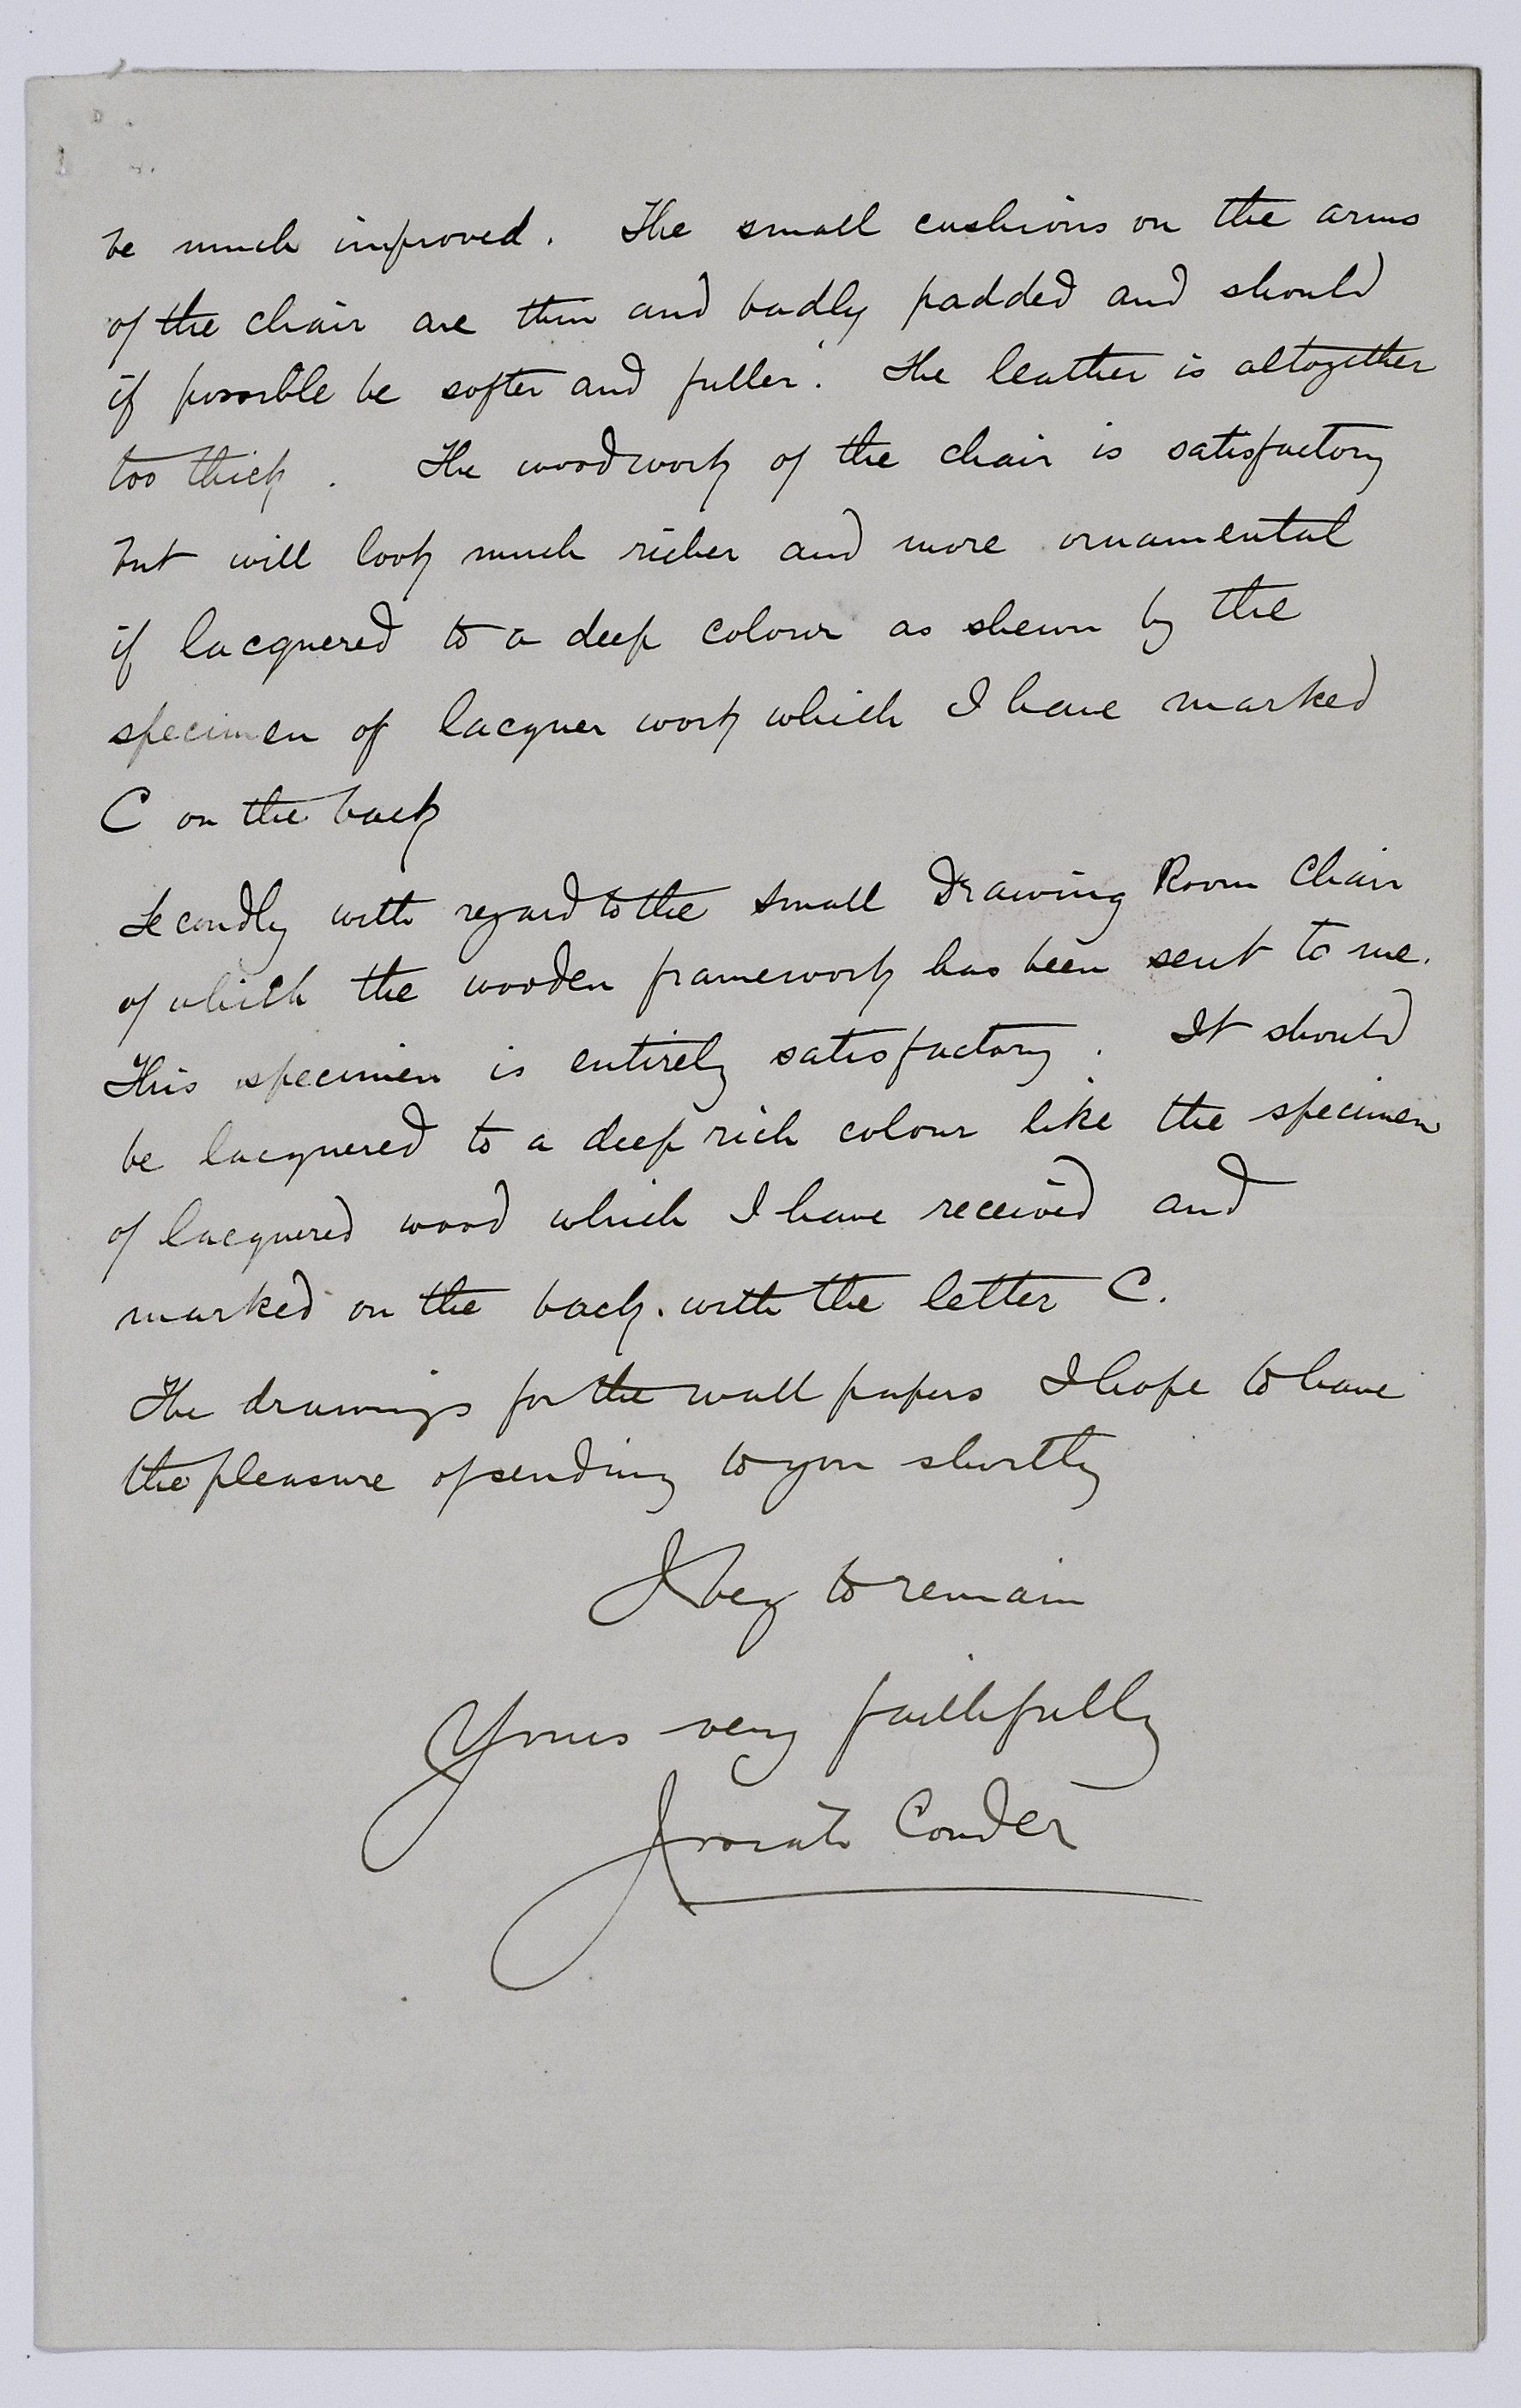 be much improved. The small cushions on the arms
of the chair are thin and badly padded and should
if possible be softer and fuller. The leather is altogether
too thick. The woodwork of the chair is satisfactory
but will look much richer and more ornamental
if lacquered to a deep colour as shewn by the
specimen of lacquer work which I have marked
C on the back
Secondly with regard to the small Drawing Room Chair
of which the wooden framework has been sent to me.
This specimen is entirely satisfactory. It should
be lacquered to a deep rich colour like the specimen
of lacquered wood which I have received and
marked on the back. with the letter C.
The drawings for the wall papers I hope to have
the pleasure of sending to you shortly
I beg to remain
Yours very faithfully
Josiah Conder